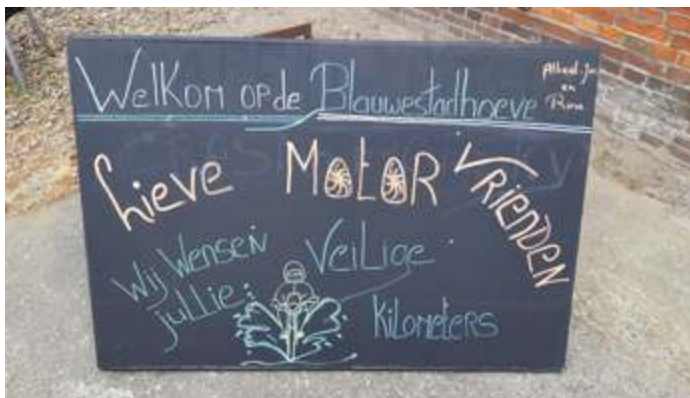 Welkom op de Blauwestadhoeve
en
Rina
Lieve Motor Vrienden
Wij Wensen Veilige
jullie
Kilometers